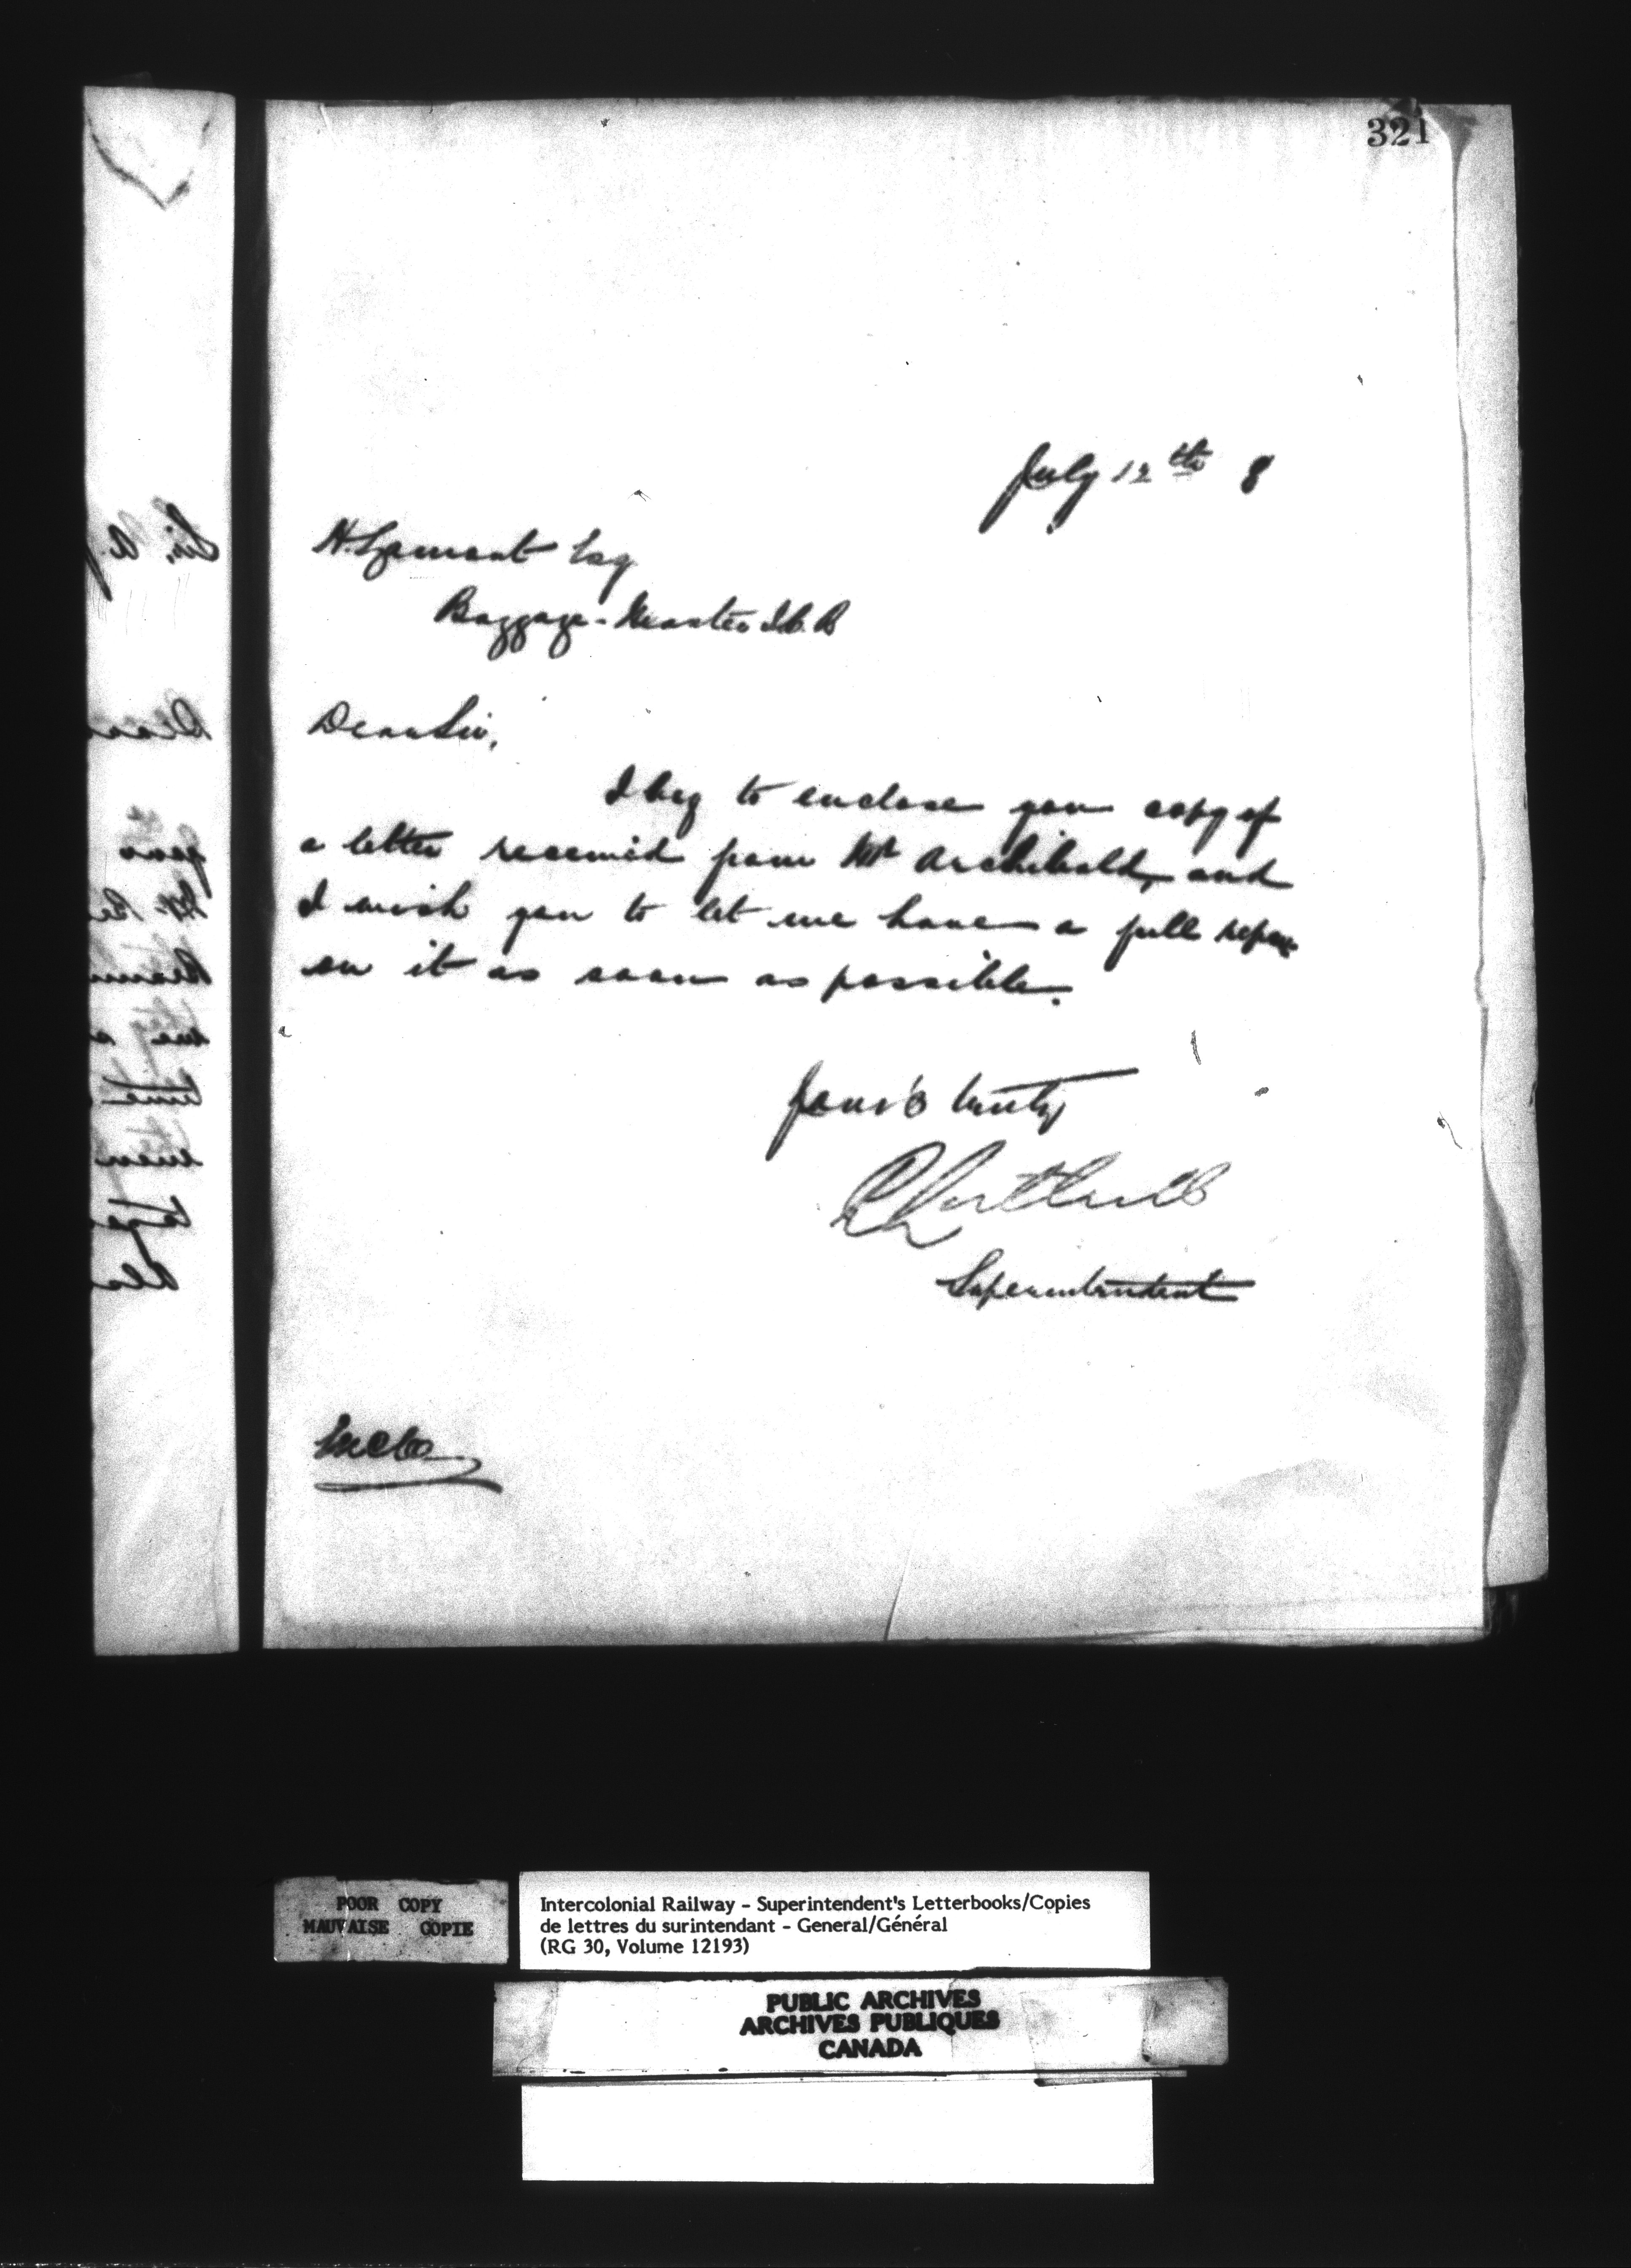 321
July 12th 8
H. Lamont Esq
Baggage-Master I.C.R
Dear Sir,
I beg to enclose you copy of
a letter received from Mr Archibald, and
I wish you to let me have a full report
on it as soon as possible.
Yours truly
Superintendent
POOR COPY
MAUVAISE COPIE
Intercolonial Railway - Superintendent's Letterbooks/Copies
de lettres du surintendant - General/Général
(RG 30, Volume 12193)
PUBLIC ARCHIVES
ARCHIVES PUBLIQUES
CANADA